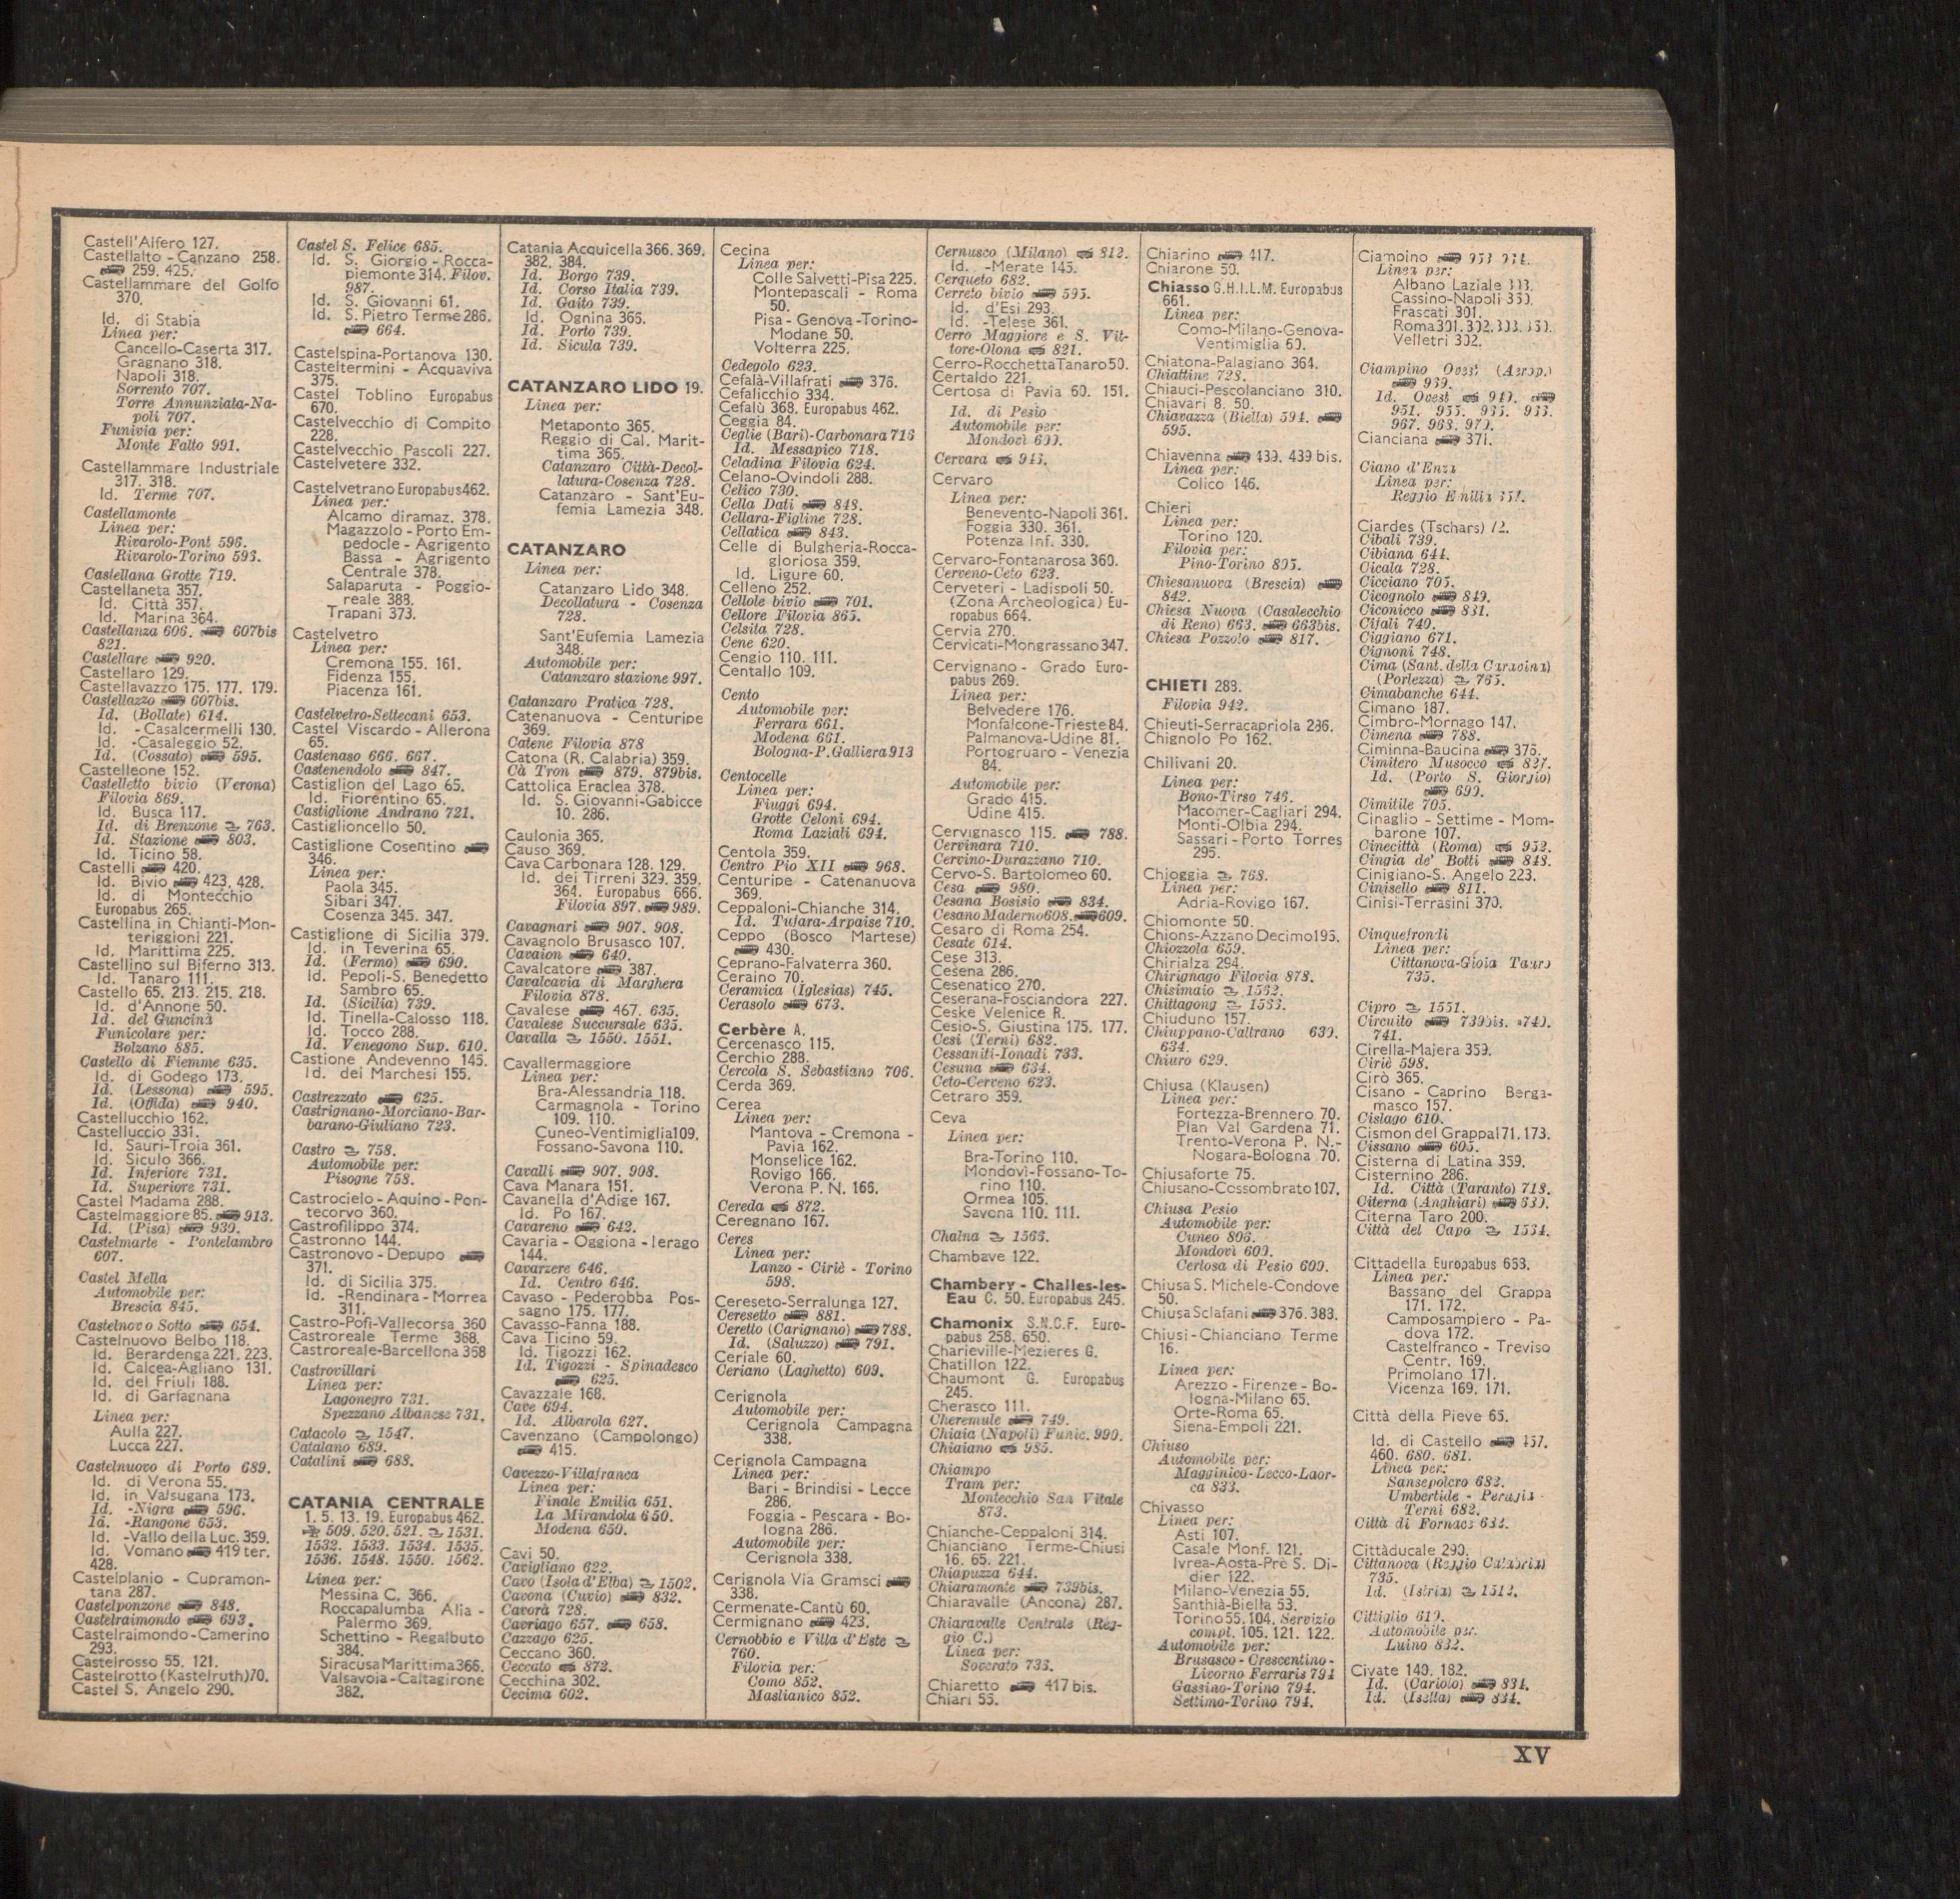 Castell'Alfero 127.
Castellalto - Canzano 258.
259. 425.
Castellammare del Golfo
370.
Id. di Stabia
Linea per:
Cancello-Caserta 317.
Gragnano 318.
Napoli 318.
Sorrento 707.
Torre Annunziata-Na-
poli 707.
Funivia per:
Monte Faito 991.
Castellammare Industriale
317. 318.
Id. Terme 707.
Castellamonte
Linea per:
Rivarolo-Pont 596.
Rivarolo-Torino 596.
Castellana Grotte 719.
Castellaneta 357.
Id. Città 357.
Id. Marina 364.
Castellanza 606. 607bis
821.
Castellare 920.
Castellaro 129.
Castellavazzo 175. 177. 179.
Castellazzo 607bis.
Id. (Bollate) 614.
Id. - Casalcermelli 130.
Id. -Casaleggio 52.
Id. (Cossato) 595.
Castelleone 152.
Castelletto bivio (Verona)
Filovia 869.
Id. Busca 117.
Id. di Brenzone 763.
Id. Stazione 803.
Id. Ticino 58.
Castelli 420.
Id. Bivio 423. 428.
Id. di Montecchio
Europabus 265.
Castellina in Chianti-Mon-
teriggioni 221.
Id. Marittima 225.
Castellino sul Biferno 313.
Id. Tanaro 111.
Castello 65. 213. 215. 218.
Id. d'Annone 50.
Id. del Guncinà
Funicolare per:
Bolzano 885.
Castello di Fiemme 635.
Id. di Godego 173.
Id. (Lessona) 595.
Id. (Offida) 940.
Castellucchio 162.
Castelluccio 331.
Id. Sauri-Troia 361.
Id. Siculo 366.
Id. Inferiore 731.
Id. Superiore 731.
Castel Madama 288.
Castelmaggiore 85. 913.
Id. (Pisa) 930.
Castelmarte - Pontelambro
607.
Castel Mella
Automobile per:
Brescia 845.
Castelnovo Sotto 654.
Castelnuovo Belbo 118.
Id. Berardenga 221. 223.
Id. Calcea-Agliano 131.
Id. del Friuli 188.
Id. di Garfagnana
Linea per:
Aulla 227.
Lucca 227.
Castelnuovo di Porto 689.
Id. di Verona 55.
Id. in Valsugana 173.
Id. -Nigra 596.
Id. -Rangone 653.
Id. -Vallo della Luc. 359.
Id. Vomano 419 ter.
428.
Castelplanio - Cupramon-
tana 287.
Castelponzone 848.
Castelraimondo 693.
Castelraimondo-Camerino
293.
Castelrosso 55. 121.
Castelrotto (Kastelruth)70.
Castel S. Angelo 290.
Castel S. Felice 685.
Id. S. Giorgio - Rocca-
piemonte 314. Filov.
987.
Id. S. Giovanni 61.
Id. S. Pietro Terme 286.
664.
Castelspina-Portanova 130.
Casteltermini - Acquaviva
375.
Castel Toblino Europabus
670.
Castelvecchio di Compito
228.
Castelvecchio Pascoli 227.
Castelvetere 332.
Castelvetrano Europabus462.
Linea per:
Alcamo diramaz. 378.
Magazzolo - Porto Em-
pedocle - Agrigento
Bassa - Agrigento
Centrale 378.
Salaparuta - Poggio-
reale 383.
Trapani 373.
Castelvetro
Linea per:
Cremona 155. 161.
Fidenza 155.
Piacenza 161.
Castelvetro-Settecani 653.
Castel Viscardo - Allerona
65.
Castenaso 666. 667.
Castenendolo 847.
Castiglion del Lago 65.
Id. Fiorentino 65.
Castiglione Andrano 721.
Castiglioncello 50.
Castiglione Cosentino
346.
Linea per:
Paola 345.
Sibari 347.
Cosenza 345. 347.
Castiglione di Sicilia 379.
Id. in Teverina 65.
Id. (Fermo) 690.
Id. Pepoli-S. Benedetto
Sambro 65.
Id. (Sicilia) 739.
Id. Tinella-Calosso 118.
Id. Tocco 288.
Id. Venegono Sup. 610.
Castione Andevenno 145.
Id. dei Marchesi 155.
Castrezzato 625.
Castrignano-Morciano-Bar-
barano-Giuliano 723.
Castro 758.
Automobile per:
Pisogne 758.
Castrocielo - Aquino - Pon-
tecorvo 360.
Castrofilippo 374.
Castronno 144.
Castronovo - Depupo
371.
Id. di Sicilia 375.
Id. -Rendinara - Morrea
311.
Castro-Pofi-Vallecorsa 360
Castroreale Terme 368.
Castroreale-Barcellona 368
Castrovillari
Linea per:
Lagonegro 731.
Spezzano Albanese 731.
Catacolo 1547.
Catalano 689.
Catalini 688.
CATANIA CENTRALE
1. 5. 13. 19. Europabus 462.
509. 520. 521. 1531.
1532. 1533. 1534. 1535.
1536. 1548. 1550. 1562.
Linea per:
Messina C. 366.
Roccapalumba Alia -
Palermo 369.
Schettino - Regalbuto
384.
Siracusa Marittima 366.
Valsavoia - Caltagirone
382.
Catania Acquicella 366. 369.
382. 384.
Id. Borgo 739.
Id. Corso Italia 739.
Id. Gaito 739.
Id. Ognina 366.
Id. Porto 739.
Id. Sicula 739.
CATANZARO LIDO 19.
Linea per:
Metaponto 365.
Reggio di Cal. Marit-
tima 365.
Catanzaro Città-Decol-
latura-Cosenza 728.
Catanzaro - Sant'Eu-
femia Lamezia 348.
CATANZARO
Linea per:
Catanzaro Lido 348.
Decollatura - Cosenza
728.
Sant'Eufemia Lamezia
348.
Automobile per:
Catanzaro stazione 997.
Catanzaro Pratica 728.
Catenanuova - Centuripe
369.
Catene Filovia 878
Catona (R. Calabria) 359.
Cà Tron 879. 879bis.
Cattolica Eraclea 378.
Id. S. Giovanni-Gabicce
10. 286.
Caulonia 365.
Causo 369.
Cava Carbonara 128. 129.
Id. dei Tirreni 329. 359.
364. Europabus 666.
Filovia 897. 989.
Cavagnari 907. 908.
Cavagnolo Brusasco 107.
Cavaion 640.
Cavalcatore 387.
Cavalcavia di Marghera
Filovia 878.
Cavalese 467. 635.
Cavalese Succursale 635.
Cavalla 1550. 1551.
Cavallermaggiore
Linea per:
Bra-Alessandria 118.
Carmagnola - Torino
109. 110.
Cuneo-Ventimiglia109.
Fossano-Savona 110.
Cavalli 907. 908.
Cava Manara 151.
Cavanella d'Adige 167.
Id. Po 167.
Cavareno 642.
Cavaria - Oggiona - Ierago
144.
Cavarzere 646.
Id. Centro 646.
Cavaso - Pederobba Pos-
sagno 175. 177.
Cavasso-Fanna 188.
Cava Ticino 59.
Id. Tigozzi 162.
Id. Tigozzi - Spinadesco
625.
Cavazzale 168.
Cave 694.
Id. Albarola 627.
Cavenzano (Campolongo)
415.
Cavezzo-Villafranca
Linea per:
Finale Emilia 651.
La Mirandola 650.
Modena 650.
Cavi 50.
Cavigliano 622.
Cavo (Isola d'Elba) 1502.
Cavona (Cuvio) 832.
Cavorà 728.
Cavriago 657. 658.
Cazzago 625.
Ceccano 360.
Ceccato 872.
Cecchina 302.
Cecima 602.
Cecina
Linea per:
Colle Salvetti-Pisa 225.
Montepascali - Roma
50.
Pisa - Genova -Torino-
Modane 50.
Volterra 225.
Cedegolo 623.
Cefalà-Villafrati 376.
Cefalicchio 334.
Cefalù 368. Europabus 462.
Ceggia 84.
Ceglie (Bari)-Carbonara 716
Id. Messapico 718.
Celadina Filovia 624.
Celano-Ovindoli 288.
Celico 730.
Cella Dati 848.
Cellara-Figline 728.
Cellatica 843.
Celle di Bulgheria-Rocca-
gloriosa 359.
Id. Ligure 60.
Celleno 252.
Cellole bivio 701.
Cellore Filovia 865.
Celsita 728.
Cene 620.
Cengio 110. 111.
Centallo 109.
Cento
Automobile per:
Ferrara 661.
Modena 661.
Bologna-P.Galliera 913
Centocelle
Linea per:
Fiuggi 694.
Grotte Celoni 694.
Roma Laziali 694.
Centola 359.
Centro Pio XII 968.
Centuripe - Catenanuova
369.
Ceppaloni-Chianche 314.
Id. Tufara-Arpaise 710.
Ceppo (Bosco Martese)
430.
Ceprano-Falvaterra 360.
Ceraino 70.
Ceramica (Iglesias) 745.
Cerasolo 673.
Cerbère A.
Cercenasco 115.
Cerchio 288.
Cercola S. Sebastiano 706.
Cerda 369.
Cerea
Linea per:
Mantova - Cremona -
Pavia 162.
Monselice 162.
Rovigo 166.
Verona P. N. 166.
Cereda 872.
Ceregnano 167.
Ceres
Linea per:
Lanzo - Ciriè - Torino
598.
Cereseto-Serralunga 127.
Ceresetto 881.
Ceretto (Carignano) 788.
Id. (Saluzzo) 791.
Ceriale 60.
Ceriano (Laghetto) 609.
Cerignola
Automobile per:
Cerignola Campagna
338.
Cerignola Campagna
Linea per:
Bari - Brindisi - Lecce
286.
Foggia - Pescara - Bo-
logna 286.
Automobile per:
Cerignola 338.
Cerignola Via Gramsci
338.
Cermenate-Cantù 60.
Cermignano 423.
Cernobbio e Villa d'Este
760.
Filovia per:
Como 852.
Maslianico 852.
Cernusco (Milano) 812.
Id. -Merate 145.
Cerqueto 682.
Cerreto bivio 595.
Id. d'Esi 293.
Id. -Telese 361.
Cerro Maggiore e S. Vit-
tore-Olona 821.
Cerro-RocchettaTanaro50.
Certaldo 221.
Certosa di Pavia 60. 151.
Id. di Pesio
Automobile per:
Mondovì 609.
Cervara 946.
Cervaro
Linea per:
Benevento-Napoli 361.
Foggia 330. 361.
Potenza Inf. 330.
Cervaro-Fontanarosa 360.
Cerveno-Ceto 623.
Cerveteri - Ladispoli 50.
(Zona Archeologica) Eu-
ropabus 664.
Cervia 270.
Cervicati-Mongrassano 347.
Cervignano - Grado Euro-
pabus 269.
Linea per:
Belvedere 176.
Monfalcone-Trieste 84.
Palmanova-Udine 81.
Portogruaro - Venezia
84.
Automobile per:
Grado 415.
Udine 415.
Cervignasco 115. 788.
Cervinara 710.
Cervino-Durazzano 710.
Cervo-S. Bartolomeo 60.
Cesa 980.
Cesana Bosisio 834.
Cesano Maderno608. 609.
Cesaro di Roma 254.
Cesate 614.
Cese 313.
Cesena 286.
Cesenatico 270.
Ceserana-Fosciandora 227.
Ceske Velenice R.
Cesio-S. Giustina 175. 177.
Cesi (Terni) 682.
Cessaniti-Ionadi 733.
Cesuna 634.
Ceto-Cerveno 623.
Cetraro 359.
Ceva
Linea per:
Bra-Torino 110.
Mondovì-Fossano-To-
rino 110.
Ormea 105.
Savona 110. 111.
Chalna 1566.
Chambave 122.
Chambery - Challes-les-
Eau C. 50. Europabus 245.
Chamonix S.N.C.F. Euro-
pabus 258. 650.
Charleville-Mezieres G.
Chatillon 122.
Chaumont G. Europabus
245.
Cherasco 111.
Cheremule 749.
Chiaia (Napoli) Funic. 990.
Chiaiano 985.
Chiampo
Tram per:
Montecchio San Vitale
873.
Chianche-Ceppaloni 314.
Chianciano Terme-Chiusi
16. 65. 221.
Chiapuzza 644.
Chiaramonte 739bis.
Chiaravalle (Ancona) 287.
Chiaravalle Centrale (Reg-
gio C.)
Linea per:
Soverato 736.
Chiaretto 417 bis.
Chiari 55.
Chiarino 417.
Chiarone 50.
Chiasso G.H.I.L.M. Europabus
661.
Linea per:
Como-Milano-Genova-
Ventimiglia 60.
Chiatona-Palagiano 364.
Chiattine 728.
Chiauci-Pescolanciano 310.
Chiavari 8. 50.
Chiavazza (Biella) 594.
595.
Chiavenna 439. 439 bis.
Linea per:
Colico 146.
Chieri
Linea per:
Torino 120.
Filovia per:
Pino-Torino 805.
Chiesanuova (Brescia)
842.
Chiesa Nuova (Casalecchio
di Reno) 663. 663bis.
Chiesa Pozzolo 817.
CHIETI 288.
Filovia 942.
Chieuti-Serracapriola 286.
Chignolo Po 162.
Chilivani 20.
Linea per:
Bono-Tirso 746.
Macomer-Cagliari 294.
Monti-Olbia 294.
Sassari - Porto Torres
295.
Chioggia 768.
Linea per:
Adria-Rovigo 167.
Chiomonte 50.
Chions-Azzano Decimo195.
Chiozzola 659.
Chirialza 294.
Chirignago Filovia 878.
Chisimaio 1562.
Chittagong 1566.
Chiuduno 157.
Chiuppano-Caltrano 630.
634.
Chiuro 629.
Chiusa (Klausen)
Linea per:
Fortezza-Brennero 70.
Plan Val Gardena 71.
Trento-Verona P. N.-
Nogara-Bologna 70.
Chiusaforte 75.
Chiusano-Cossombrato107.
Chiusa Pesio
Automobile per:
Cuneo 806.
Mondovì 609.
Certosa di Pesio 609.
Chiusa S. Michele-Condove
50.
Chiusa Sclafani 376. 383.
Chiusi - Chianciano Terme
16.
Linea per:
Arezzo - Firenze - Bo-
logna-Milano 65.
Orte-Roma 65.
Siena-Empoli 221.
Chiuso
Automobile per:
Magginico-Lecco-Laor-
ca 833.
Chivasso
Linea per:
Asti 107.
Casale Monf. 121.
Ivrea-Aosta-Prè S. Di-
dier 122.
Milano-Venezia 55.
Santhià-Biella 53.
Torino 55. 104. Servizio
compl. 105. 121. 122.
Automobile per:
Brusasco - Crescentino-
Livorno Ferraris 794
Gassino-Torino 794.
Settimo-Torino 794.
Ciampino
Linea per:
Albano Laziale
Cassino-Napoli
Frascati 301.
Roma
Velletri 302.
Ciampino Ovest (Aerop.)
939.
Id. Ovest
967. 968. 970.
Cianciana 371.
Ciano d'Enza
Linea per:
Reggio Emilia
Ciardes (Tschars) 72.
Cibali 739.
Cibiana 644.
Cicala 728.
Cicciano 705.
Cicognolo 849.
Ciconicco 881.
Cifali 740.
Ciggiano 671.
Cignoni 748.
Cima (Sant. della Caravina)
(Porlezza) 765.
Cimabanche 644.
Cimano 187.
Cimbro-Mornago 147.
Cimena 788.
Ciminna-Baucina 376.
Cimitero Musocco 827.
Id. (Porto S. Giorgio)
690.
Cimitile 705.
Cinaglio - Settime - Mom-
barone 107.
Cinecittà (Roma) 952.
Cingia de' Botti 848.
Cinigiano-S. Angelo 223.
Cinisello 811.
Cinisi-Terrasini 370.
Cinquefrondi
Linea per:
Cittanova-Gioia Tauro
735.
Cipro 1551.
Circuito 739bis. 740.
741.
Cirella-Majera 359.
Ciriè 598.
Cirò 365.
Cisano - Caprino Berga-
masco 157.
Cislago 610.
Cismon del Grappa171. 173.
Cissano 605.
Cisterna di Latina 359.
Cisternino 286.
Id. Città (Taranto) 718.
Citerna (Anghiari)
Citerna Taro 200.
Città del Capo 1564.
Cittadella Europabus 668.
Linea per:
Bassano del Grappa
171. 172.
Camposampiero - Pa-
dova 172.
Castelfranco - Treviso
Centr. 169.
Primolano 171.
Vicenza 169. 171.
Città della Pieve 65.
Id. di Castello 457.
460. 680. 681.
Linea per:
Sansepolcro 682.
Umbertide - Perugia -
Terni 682.
Città di Fornaci 634.
Cittàducale 290.
Cittanova (Reggio Calabria)
735.
Id. (Istria) 1512.
Cittiglio 610.
Automobile per:
Luino 832.
Civate 140. 182.
Id. (Cariolo) 834.
Id. (Isella) 834.
XV